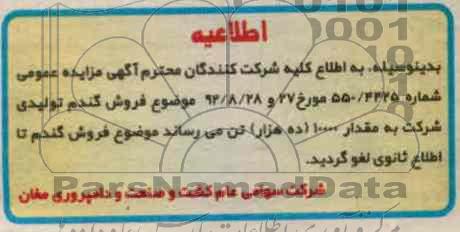 اطلاعیه
بدینوسیله، به اطلاع کلیه شرکت کنندگان محترم آگهی مزایده عمومی
شماره ۵۵۰/۴۴۲۵ مورخ ۲۷ و ۹۲/۸/۲۸ موضوع فروش گندم تولیدی
شرکت به مقدار ۱۰۰۰۰ (ده هزار) تن می رساند موضوع فروش گندم تا
اطلاع ثانوی لغو گردید.
ParsNamadData
شرکت سهامی عام کشت و صنعت و دامپروری مغان